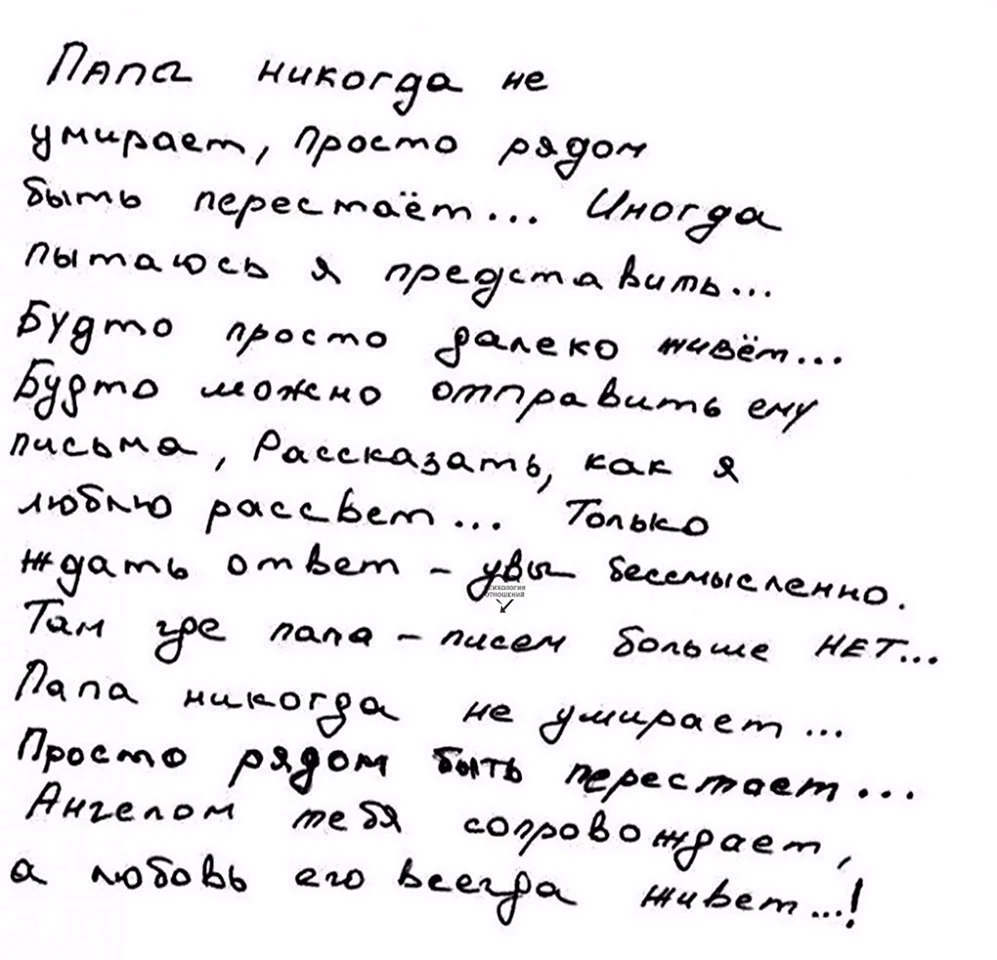 Папа никогда не
умирает, просто рядом
быть перестаёт... Иногда
пытаюсь я представить...
Будто просто далеко живём...
Будто можно отправить ему
письма, Рассказать, как я
люблю рассвет... Только
ждать ответ - увы бессмысленно.
психология
отношений
Там где папа - писем больше НЕТ...
Папа никогда не умирает...
Просто рядом быть перестает...
Ангелом тебя сопровождает,
а любовь его всегда живет...!